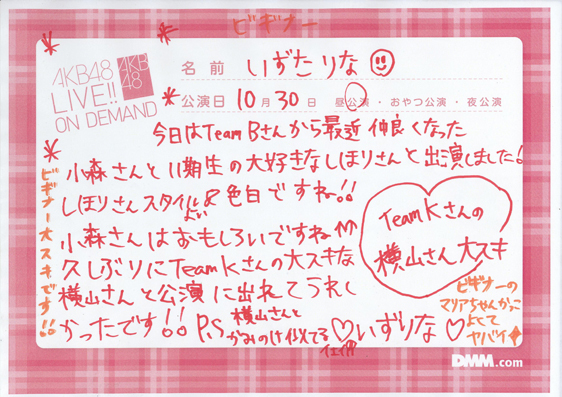 ビギナー
AKB48
LIVE!!
ON DEMAND
AKB
48
名前 いずたりな
公演日 10月30日 昼公演・おやつ公演・夜公演
今日はTeam Bさんから最近仲良くなった
小森さんと11期生の大好きなしほりさんと出演しました!
しほりさんスタイルよい&色白ですね!!
小森さんはおもしろいですねm
久しぶりにTeam Kさんの大スキな
横山さんと公演に出れてうれし
かったです!! P.S 横山さんと
かみのけ似てる♡いずりな♡
イェイ
Team Kさんの
横山さん大スキ
ビギナー大スキです!!
ビギナーの
マリアちゃんかっこ
よくて
ヤバイ
DMM.com